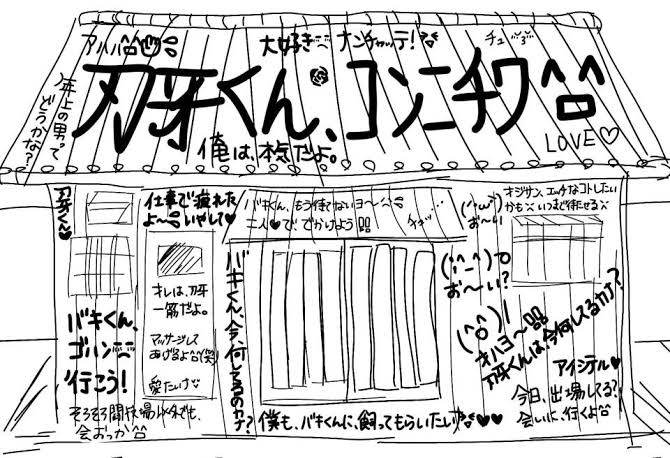 アハハ
大好き ナンチャッテ!
チュ
刃牙くん、コンニチワ^口^
年上の男って
どうかな?
俺は、本気だよ。
LOVE♡
刃牙くん♥
仕事で疲れた
よ〜 いやして♥
バキくん、もう待てないヨ〜
二人♥で でかけよう
(^ω^)
お〜い
オジサン、エッチなコトしたい
かも いつまで待たせる
オレは、刃牙
一筋だよ。
マッサージして
あげるよ(笑)
愛たいけ
バキくん、今、何してるのカナ?
(^_^)
お〜い?
(^o^)/
オハヨ〜
刃牙くんは、今何してるカナ?
バキくん、
ゴハン
行こう!
そろそろ闘技場以外でも、
会おっか
僕も、バキくんに、飼ってもらいたい♥♥
アイシテル♥
今日、出場してる?
会いに、行くよ